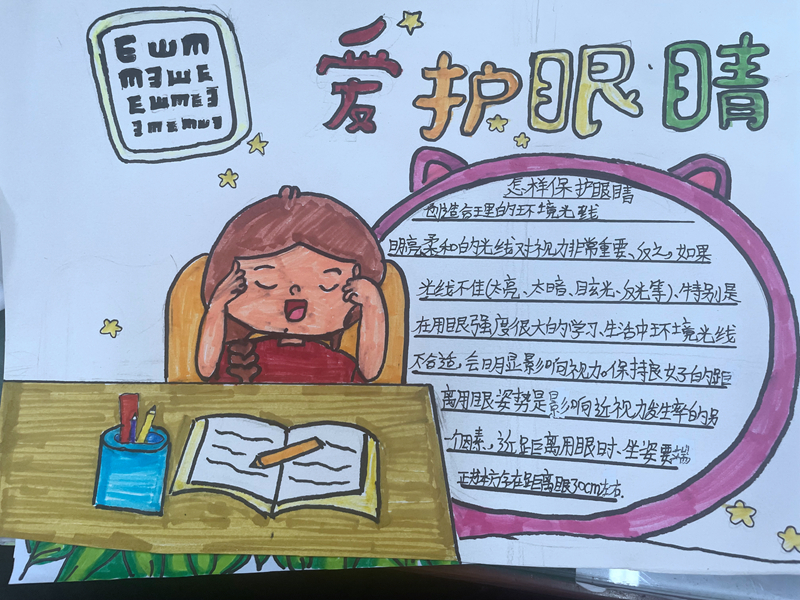 E W M
M 3 W E
E W M E 3
3 M E M W 3
爱护眼睛
怎样保护眼睛
创造合理的环境光线
明亮柔和的光线对视力非常重要、反之,如果
光线不佳(太亮、太暗、目玄光、反光等)、特别是
在用眼强度很大的学习、生活中环境光线
不合适,会明显影响视力。保持良好的距
离用眼姿势是影响近视力发生率的另
一个因素,近距离用眼时、坐姿要端
正趟本存在距离眼30cm左右.